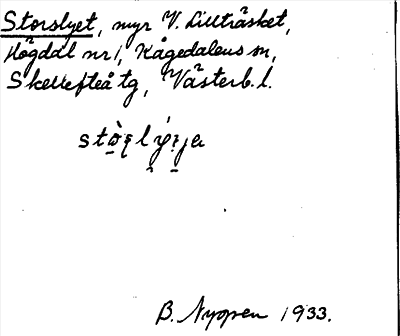 Storslyet, myr V. Lillträsket,
Högdal nr 1, Kågedalens sn,
Skellefteå tg, Västerb. l.
B. Nygren 1933.